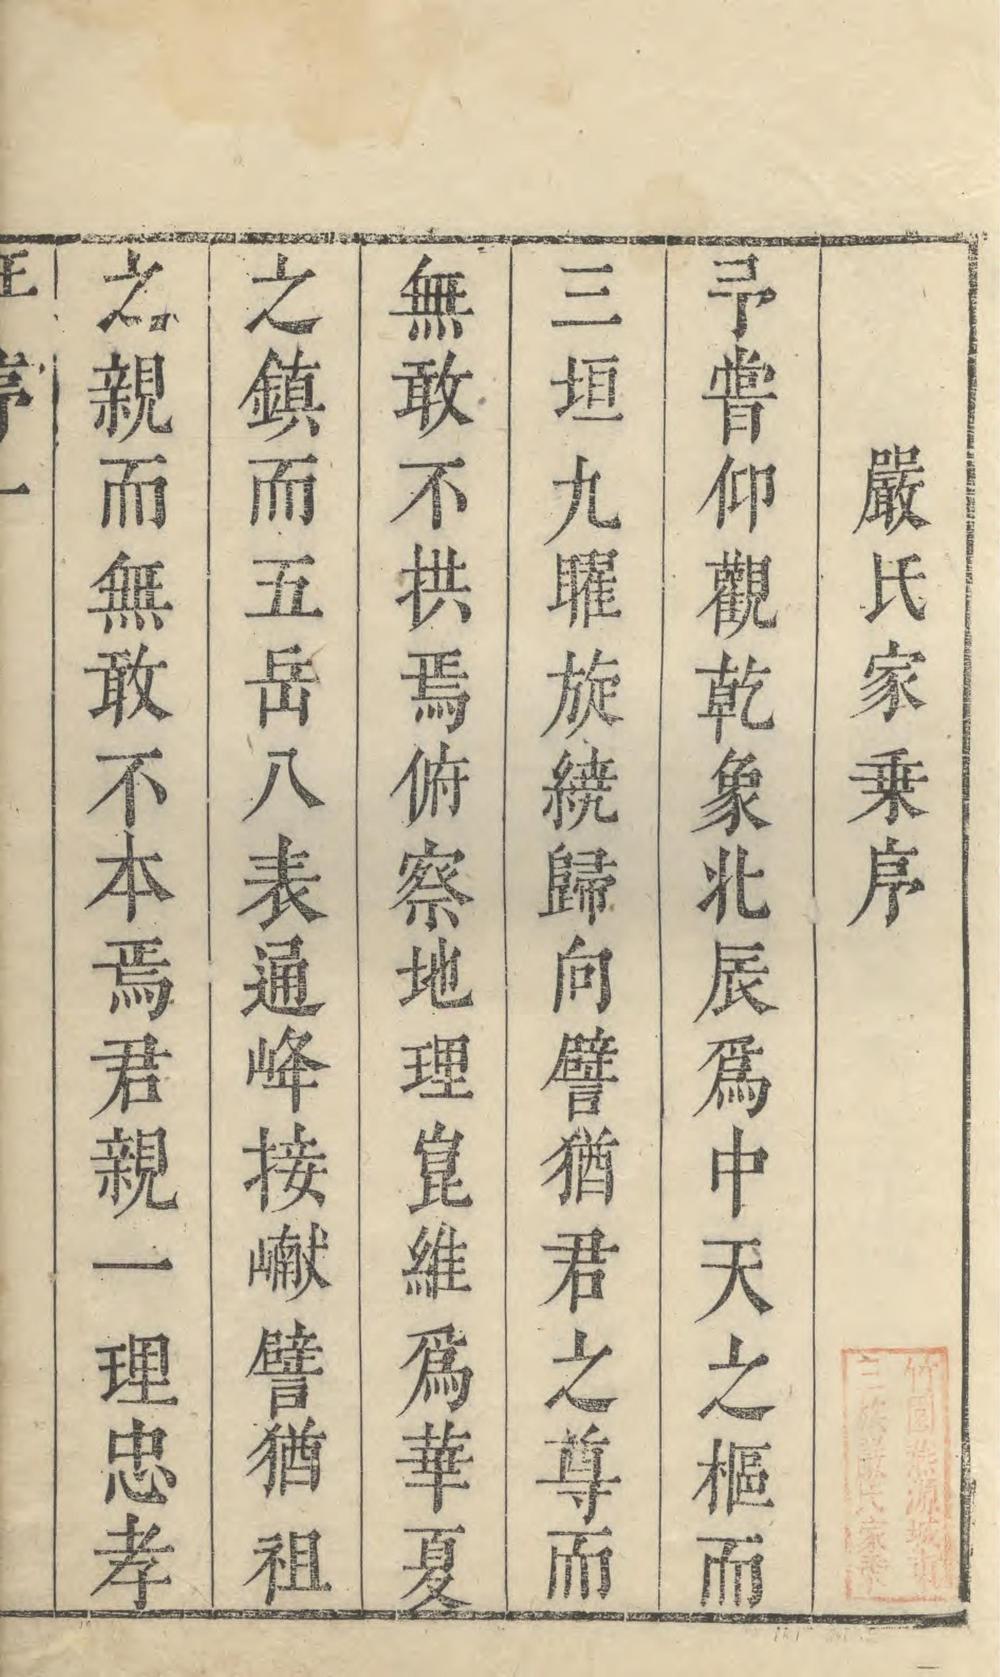 嚴氏家乗序
予嘗仰觀乾象北辰爲中天之樞而
三垣九曜旋繞歸向譬猶君之尊而
無敢不拱焉俯察地理崑維爲華夏
之鎮而五岳八表通峰接巘譬猶祖
之親而無敢不本焉君親一理忠孝
序一
竹園
三族嚴氏家乗